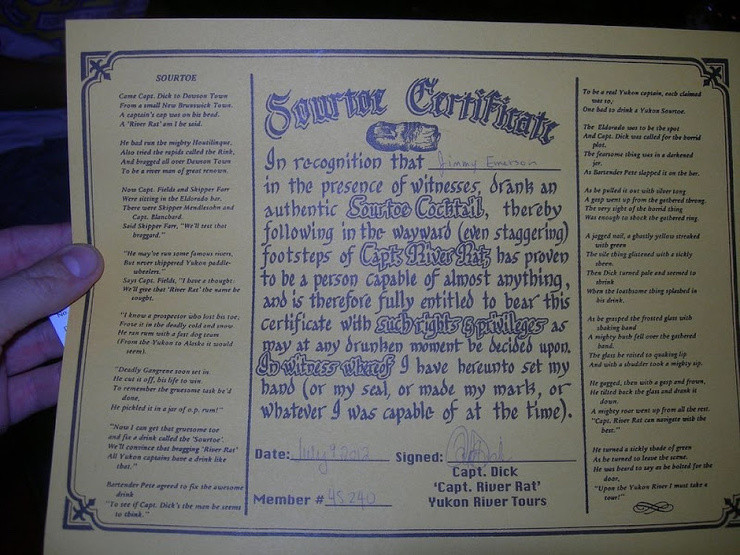 SOURTOE
Came Capt. Dick to Dawson Town
From a small New Brunswick Town.
A captain's cap was on his head.
A 'River Rat' am I he said.
He had run the mighty Hootilinqua,
Also tried the rapids called the Rink,
And bragged all over Dawson Town
To be a river man of great renown.
Now Capt. Fields and Skipper Farr
Were sitting in the Eldorado bar.
There were Skipper Mendlesohn and
Capt. Blanchard.
Said Skipper Farr, "We'll test that
braggard."
"He may've run some famous rivers,
But never skippered Yukon paddle-
wheelers."
Says Capt. Fields, "I have a thought-
We'll give that 'River Rat' the name he
sought.
"I knew a prospector who lost his toe;
Froze it in the deadly cold and snow.
He ran rum with a fast dog team
(From the Yukon to Alaska it would
seem).
"Deadly Gangrene soon set in.
He cut it off, his life to win.
To remember the gruesome task he'd
done,
He pickled it in a jar of o.p. rum!"
"Now I can get that gruesome toe
and fix a drink called the 'Sourtoe'.
We'll convince that bragging 'River Rat'
All Yukon captains have a drink like
that."
Bartender Pete agreed to fix the awesome
drink
"To see if Capt. Dick's the man he seems
to think."
Sourtoe Certificate
In recognition that Jimmy Emerson
in the presence of witnesses, drank an
authentic Sourtoe Cocktail, thereby
following in the wayward (even staggering)
footsteps of Capt. River Rat, has proven
to be a person capable of almost anything,
and is therefore fully entitled to bear this
certificate with such rights & privileges as
may at any drunken moment be decided upon.
In witness whereof I have hereunto set my
hand (or my seal, or made my mark, or
whatever I was capable of at the time).
Date: July 9 2012 Signed:
Capt. Dick
'Capt. River Rat'
Yukon River Tours
Member # 45 240
To be a real Yukon captain, each claimed
was to;
One had to drink a Yukon Sourtoe.
The Eldorado was to be the spot
And Capt. Dick was called for the horrid
plot.
The fearsome thing was in a darkened
jar.
As Bartender Pete slapped it on the bar.
As he pulled it out with silver tong
A gasp went up from the gathered throng.
The very sight of the horrid thing
Was enough to shock the gathered ring.
A jagged nail, a ghastly yellow streaked
with green
The vile thing glistened with a sickly
sheen.
Then Dick turned pale and seemed to
shrink
When the loathsome thing splashed in
his drink.
As he grasped the frosted glass with
shaking hand
A mighty hush fell over the gathered
band.
The glass he raised to quaking lip
And with a shudder took a mighty sip.
He gagged, then with a gasp and frown,
He tilted back the glass and drank it
down.
A mighty roar went up from all the rest.
"Capt. River Rat can navigate with the
best."
He turned a sickly shade of green
As he turned to leave the scene.
He was heard to say as he bolted for the
door,
"Upon the Yukon River I must take a
tour!"